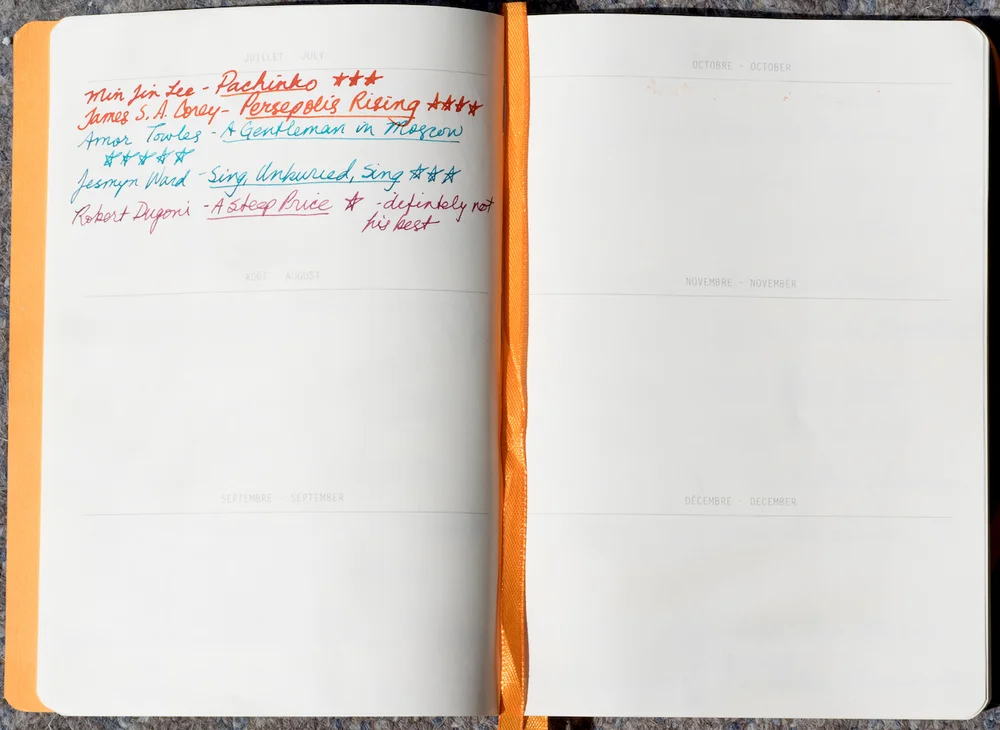 JUILLET JULY
Min Jin Lee - Pachinko ★★★
James S. A. Corey - Persepolis Rising ★★★★
Amor Towles - A Gentleman in Moscow
★★★★★
Jesmyn Ward - Sing, Unburied, Sing ★★★
Robert Dugoni - A Steep Price ★ - definitely not
his best
AOÛT AUGUST
SEPTEMBRE - SEPTEMBER
OCTOBRE - OCTOBER
NOVEMBRE - NOVEMBER
DÉCEMBRE - DECEMBER